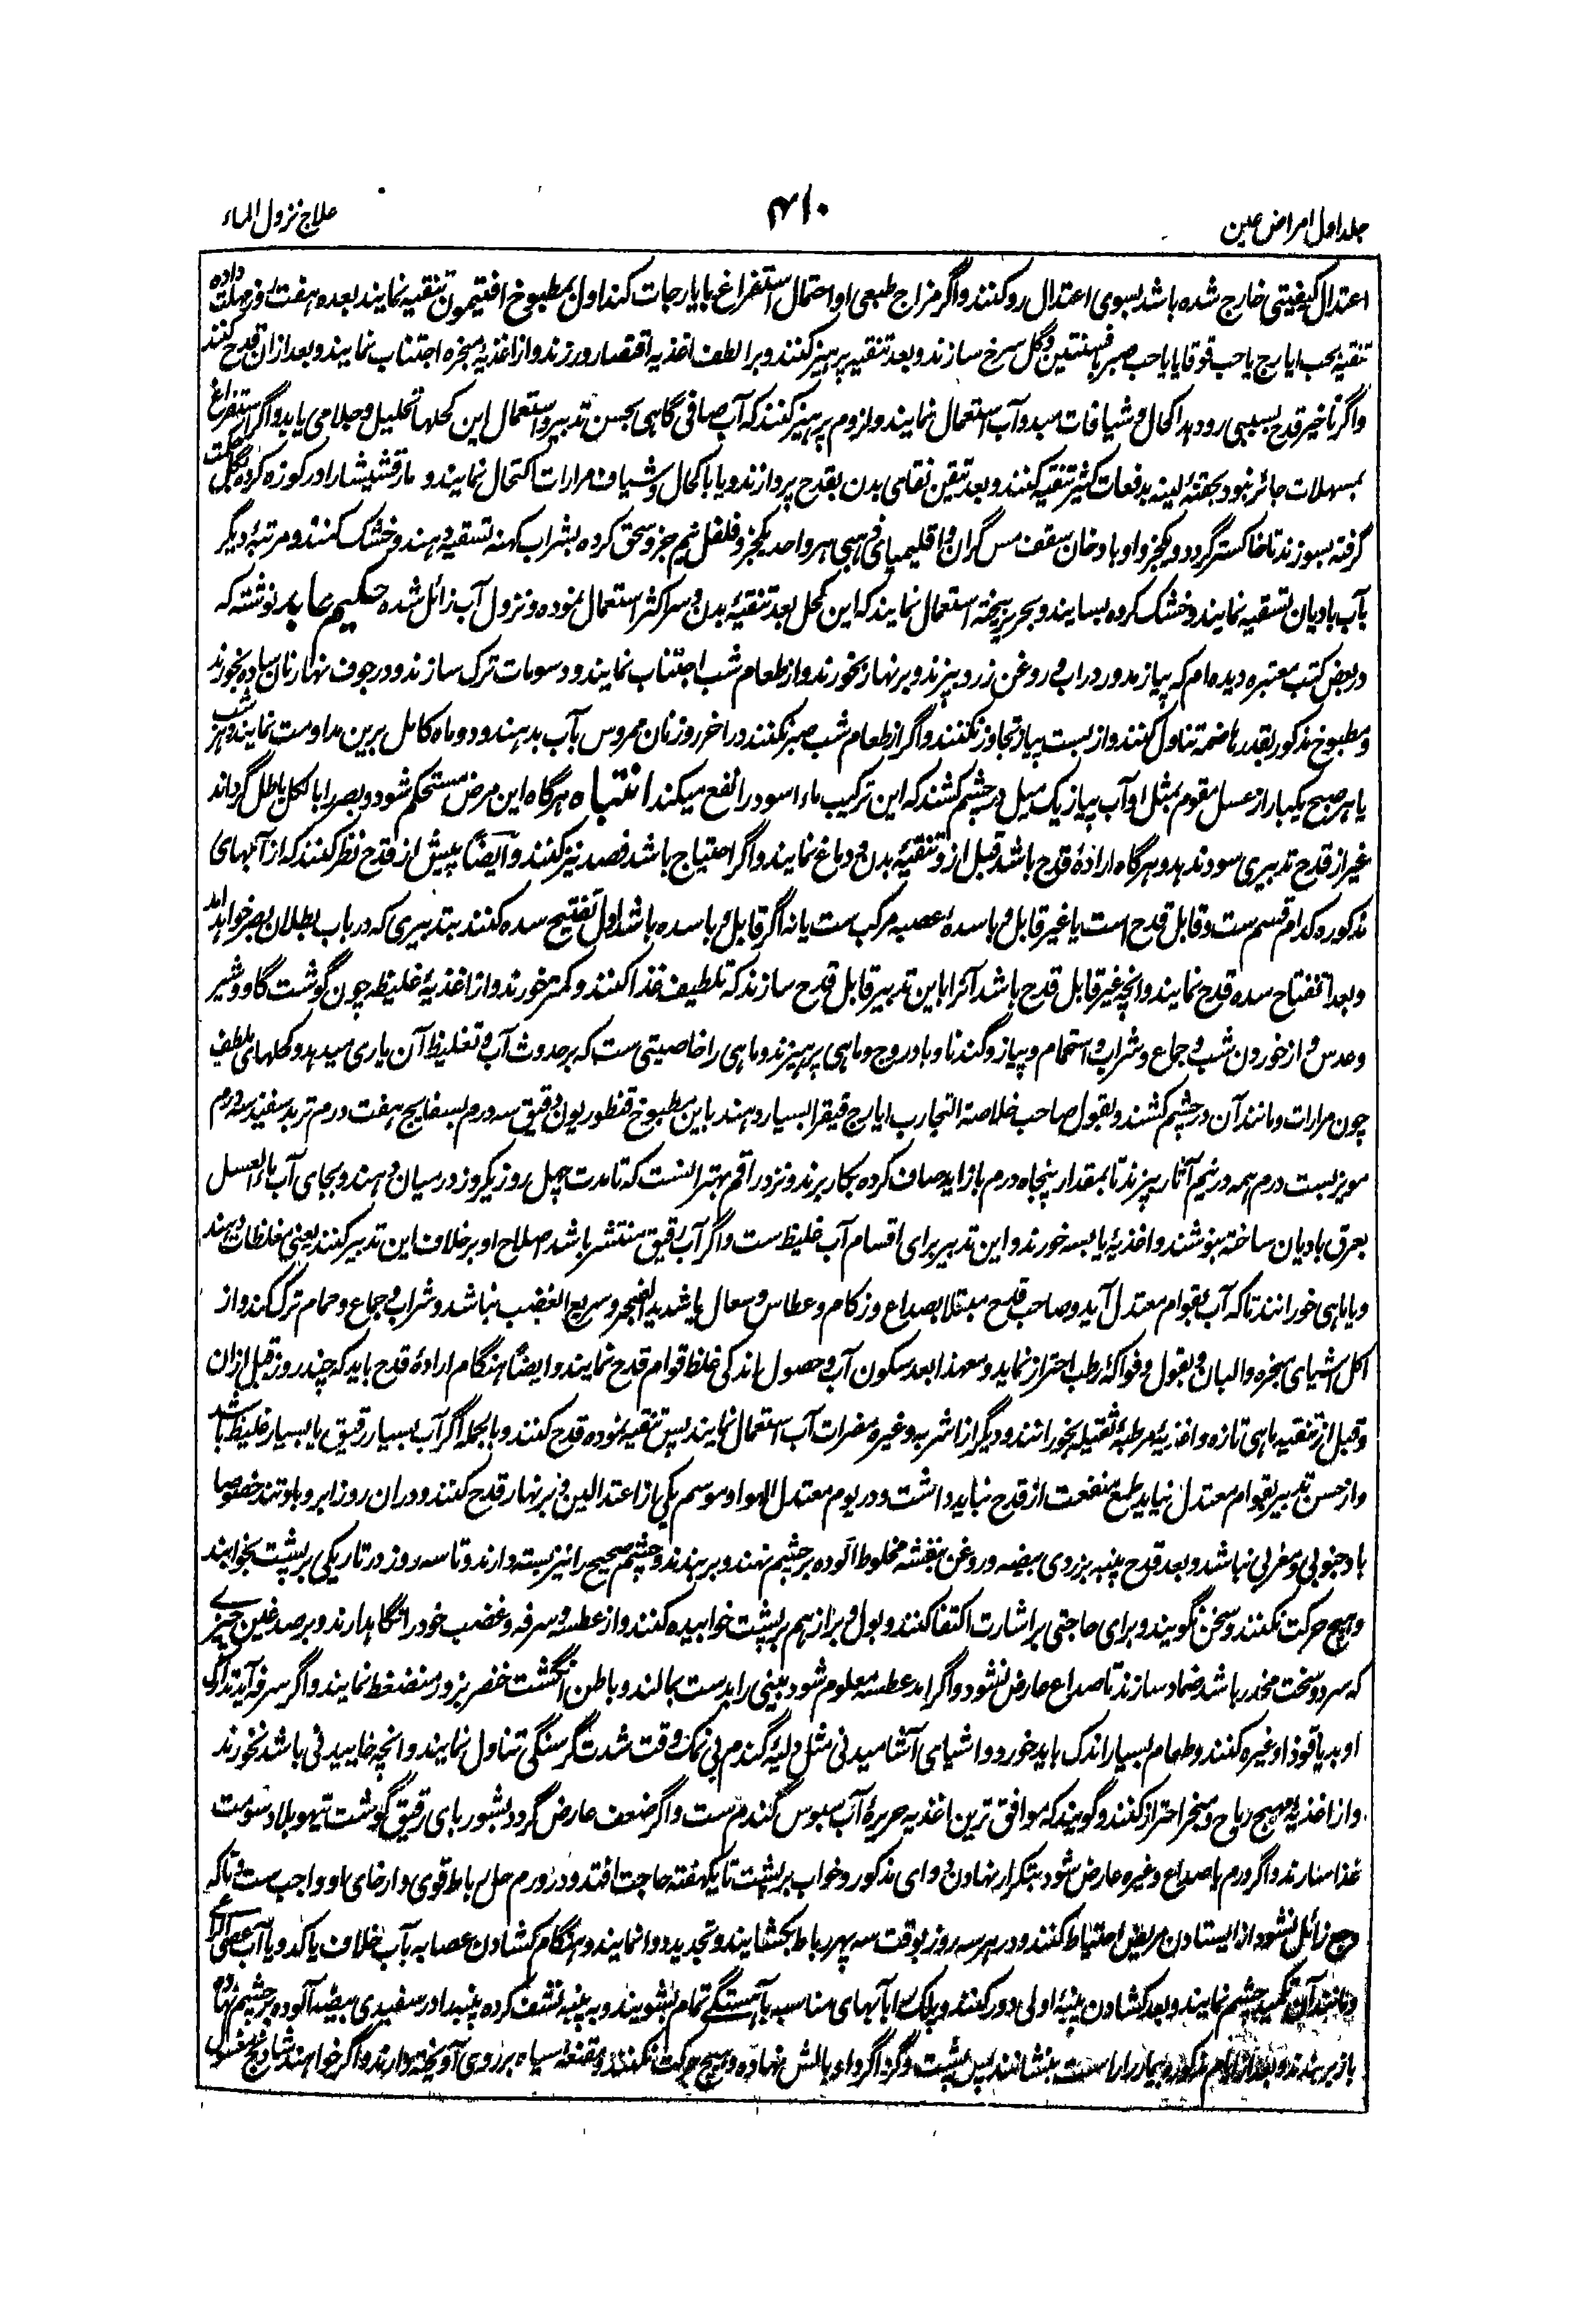 جلد اول امراض عین
۴۱۰
علاج نزول الماء
اعتدال کیفیتی خارج شده باشد بسوی اعتدال رو کنند و اگر مزاج طبعی او احتمال استفراغ بایارجات کند اول بمطبوخ افتیمون تنقیه نمایند بعده هفت روز مهلت داده
تنقیه بحب ایارج یا حب قوقایا یا حب صبر با فسنتین و گل سرخ سازند و بعد تنقیه پرهیز کنند و بر الطف اغذیه اقتصار ورزند و از اغذیه مبخره اجتناب نمایند و بعد ازان قدح کنند
و اگر تاخیر قدح بسببی رود هد اکحال و شیافات مبدو آب استعمال نمایند و لزوم پرهیز کنند که آب صافی گاهی بحسن تدبیر و استعمال این کحلها تحلیل و جلا می یابد و اگر استفراغ
بمسهلات جائز نبود بحقنه لینه بدفعات کثیر تنقیه کنند و بعد تیقن نقای بدن بقدح پردازند و یا باکحال و شیاف مرارات اکتحال نمایند و مارقشیشا را در کوزه کرده بگل حکمت
گرفته بسوزند تا خاکستر گردد و یکجزو او با دخان سقف مس گران و اقلیمیای ذهبی هر واحد یکجز و فلفل نیم جز و سحق کرده بشراب کهنه تسقیه دهند و خشک کنند و مرتبه دیگر
بآب بادیان تسقیه نمایند و خشک کرده بسایند و بحریر بیخته استعمال نمایند که این کحل بعد تنقیه بدن و سر اکثر استعمال نموده و نزول آب زائل شده حکیم عابد نوشته که
در بعض کتب معتبره دیده ام که پیاز مدور در آب و روغن زرد بپزند و بر نهار بخورند و از طعام شب اجتناب نمایند و دسومات ترک سازند و در جوف نهار نان ساده بخورند
و مطبوخ مذکور بقدر هاضمه تناول کنند و از بست پیاز تجاوز نکنند و اگر از طعام شب صبر نکنند در اخر روز نان مهروس بآب بدهند و دو ماه کامل برین مداومت نمایند و هر شب
یا هر صبح یکبار از عسل مقوم بمثل او آب پیاز یک میل در چشم کشند که این ترکیب ماء اسود را نفع میکند انتباه هرگاه این مرض مستحکم شود و بصر را بالکل باطل گرداند
غیر از قدح تدبیری سود ندهد و هرگاه اراده قدح باشد قبل از و تنقیه بدن و دماغ نمایند و اگر احتیاج باشد فصد نیز کنند و ایضاً پیش از قدح نظر کنند که از آبهای
مذکوره کدام قسم ست و قابل قدح است یا غیر قابل و با سده عصبه مرکب ست یا نه اگر قابل و با سده باشد اول تفتیح سده کنند بتدبیری که در باب بطلان بصر خواهد آمد
و بعد انفتاح سده قدح نمایند و انچه غیر قابل قدح باشد آنرا باین تدبیر قابل قدح سازند که تلطیف غذا کنند و کمتر خورند و از اغذیه غلیظه چون گوشت گاو و شیر
و عدس و از خوردن شب و جماع و شراب و استحمام و پیاز و گندنا و بادروج و ماهی پرهیزند و ماهی را خاصیتی ست که بر حدوث آب و تغلیظ آن یاری میدهد و کحلهای ملطف
چون مرارات و مانند آن در چشم کشند و بقول صاحب خلاصة التجارب ایارج فیقرا بسیار دهند باین مطبوخ قنطوریون دقیق سه درم بسفایج هفت درم تربد سفید سه درم
مویز بست درم همه در نیم آثار بپزند تا بمقدار پنجاه درم باز آید صاف کرده بکار برند و نزد راقم بهتر انست که تا مدت چهل روز یکروز در میان دهند و بجای آب ماء العسل
بعرق بادیان ساخته بنوشند و اغذیه یابسه خورند و این تدبیر برای اقسام آب غلیظ ست و اگر آب رقیق منتشر باشد صلاح او بر خلاف این تدبیر کنند یعنی مغلظات دهند
و یا ماهی خورانند تا که آب بقوام معتدل آید و صاحب قدح مبتلا بصداع و زکام و عطاس و سعال یا شدید الضجر و سریع الغضب نباشد و شراب و جماع و حمام ترک کند و از
اکل اشیای مبخره و البان و بقول و فواکه رطب احتراز نماید و معهذا بعد سکون آب و حصول اندکی غلظ قوام قدح نمایند و ایضاً هنگام اراده قدح باید که چند روز قبل ازان
و قبل از تنقیه ماهی تازه و اغذیه مرطبه ثقیله بخورانند و دیگر از اشربه و غیره مضرات آب استعمال نمایند پس تنقیه نموده قدح کنند و بالجمله اگر آب بسیار رقیق یا بسیار غلیظ باشد
و از حسن تدبیر بقوام معتدل نیاید طمع منفعت از قدح نباید داشت و در یوم معتدل الهوا و موسم یکی از اعتدالین و بر نهار قدح کنند و دران روز ابر و باد تند خصوصا
باد جنوبی و مغربی نباشد و بعد قدح پنبه بزردی بیضه و روغن بنفشه مخلوط آلوده بر چشم نهند و بربندند و چشم صحیح را نیز بسته دارند و تا سه روز در تاریکی بر پشت بخوابند
و هیچ حرکت نکنند و سخن نگویند و برای حاجتی بر اشارت اکتفا کنند و بول و براز هم بر پشت خوابیده کنند و از عطسه و سرفه و غضب خود را نگاهدارند و بر صدغین چیزے
که سرد و سخت مخدر باشد ضماد سازند تا صداع عارض نشود و اگر امد عطسه معلوم شود بینی را بدست بمالند و باطن انگشت خنصر بزور منضغط نمایند و اگر سرفه آید تدارک
او بدیاقوذا و غیره کنند و طعام بسیار اندک باید خورد و اشیای آشامیدنی مثل دلیه گندم بی نمک وقت شدت گرسنگی تناول نمایند و انچه خاییدنی باشد نخورند
و از اغذیه مهیج ریاح و مبخر احتراز کنند و گویند که موافق ترین اغذیه حریره آب سبوس گندم ست و اگر ضعف عارض گردد بشوربای رقیق گوشت تیهو بلا دسومت
غذا سازند و اگر ورم یا صداع و غیره عارض شود بتکرار نهادن دوای مذکور و خواب بر پشت تا یکهفته حاجت افتد و در ورم حل رباط قوی و ارخای او واجب ست و تا که
وجع زائل نشود از ایستادن مریض احتیاط کنند و در هر سه روز بوقت سه پهر رباط بکشایند و تجدید دوا نمایند و هنگام کشادن عصابه بآب خلاف یا کدو یا آب عصی الراعی
و مانند آن تکمید چشم نمایند و بعد کشادن پنبه اولی دور کنند و پلک را بآبهای مناسب بآهستگی تمام بشویند و به پنبه نشف کرده پنبه را در سفیدی بیضه آلوده بر چشم نهاده
باز بربندند و بعد از ایام مذکوره بیمار را راست بنشانند پس پشت و گرداگرد او بالش نهاده و هیچ حرکت نکنند و مقنعه سیاه بر روی آویخته دارند و اگر خواهند شادنج مغسول